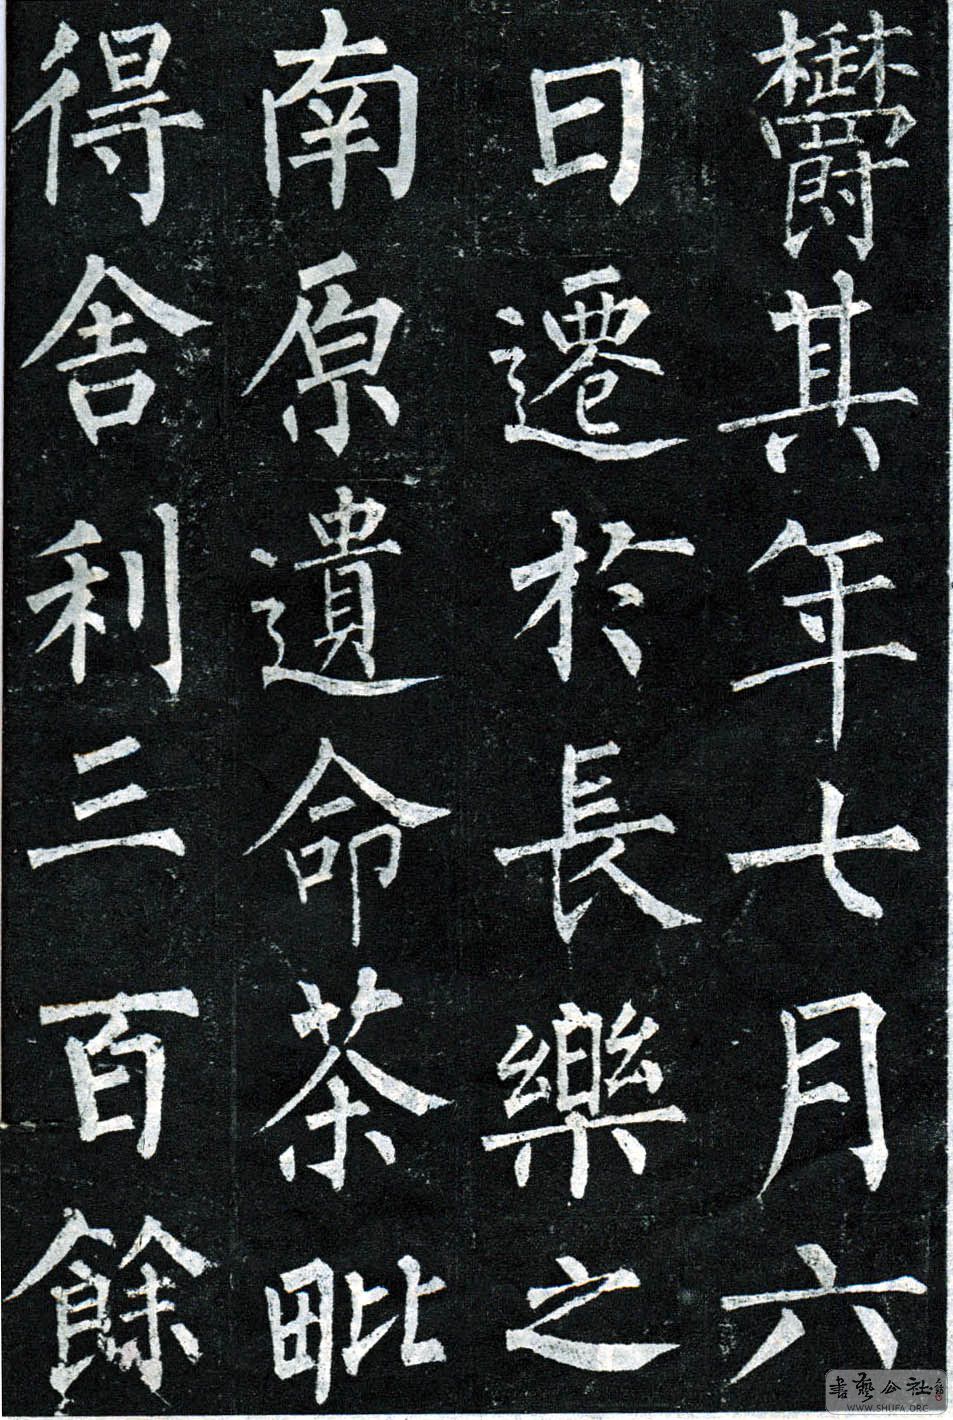 欝其年七月六
日遷於長樂之
南原遺命茶毗
得舍利三百餘
書藝公社
WWW.SHUFA.ORG